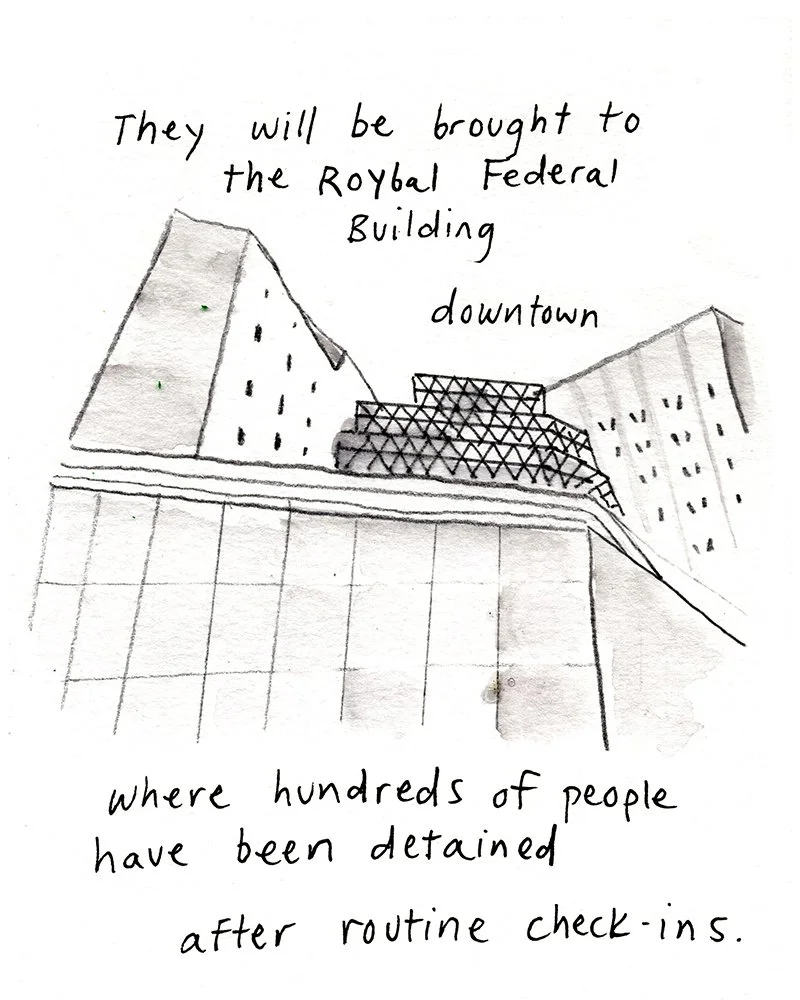 They will be brought to
the Roybal Federal
Building
downtown
where hundreds of people
have been detained
after routine check-ins.